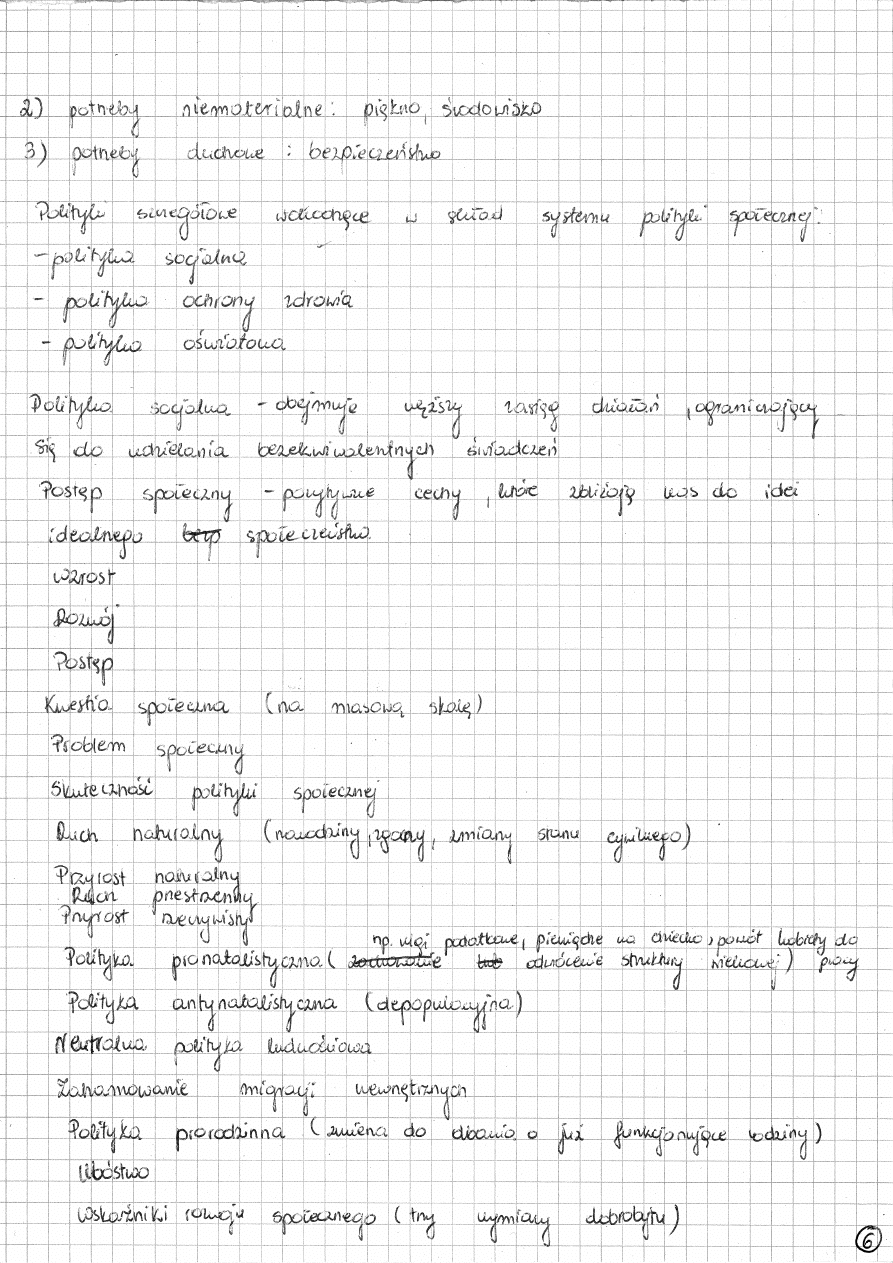 2) potrzeby niematerialne: piękno, środowisko
3) potrzeby duchowe : bezpieczeństwo
Polityki szczegółowe wchodzące w skład systemu polityki społecznej:
- polityka socjalna
- polityka ochrony zdrowia
- polityka oświatowa
Polityka socjalna - obejmuje węższy zasięg działań, ograniczający
się do udzielania bezekwiwalentnych świadczeń
Postęp społeczny - pozytywne cechy, które zbliżają nas do idei
idealnego społeczeństwa.
Wzrost
Rozwój
Postęp
Kwestia społeczna (na masową skalę)
Problem społeczny
Skuteczność polityki społecznej
Ruch naturalny (narodziny, zgony, zmiany stanu cywilnego)
Przyrost naturalny
Ruch przestrzenny
Przyrost rzeczywisty
np. ulgi podatkowe, pieniądze na dziecko, powrót kobiety do pracy
Polityka pronatalistyczna ( odwrócenie struktury wiekowej)
Polityka antynatalistyczna (depopulacyjna)
Neutralna polityka ludnościowa
Zahamowanie migracji wewnętrznych
Polityka prorodzinna (zmierza do dbania o już funkcjonujące rodziny)
Ubóstwo
Wskaźniki rozwoju społecznego (trzy wymiary dobrobytu)
6